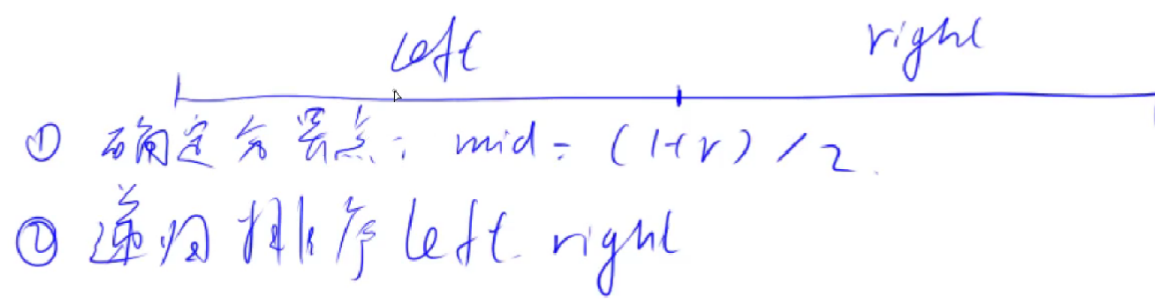 left right
① 确定分界点：mid = (l+r)/2.
② 递归排序 left. right